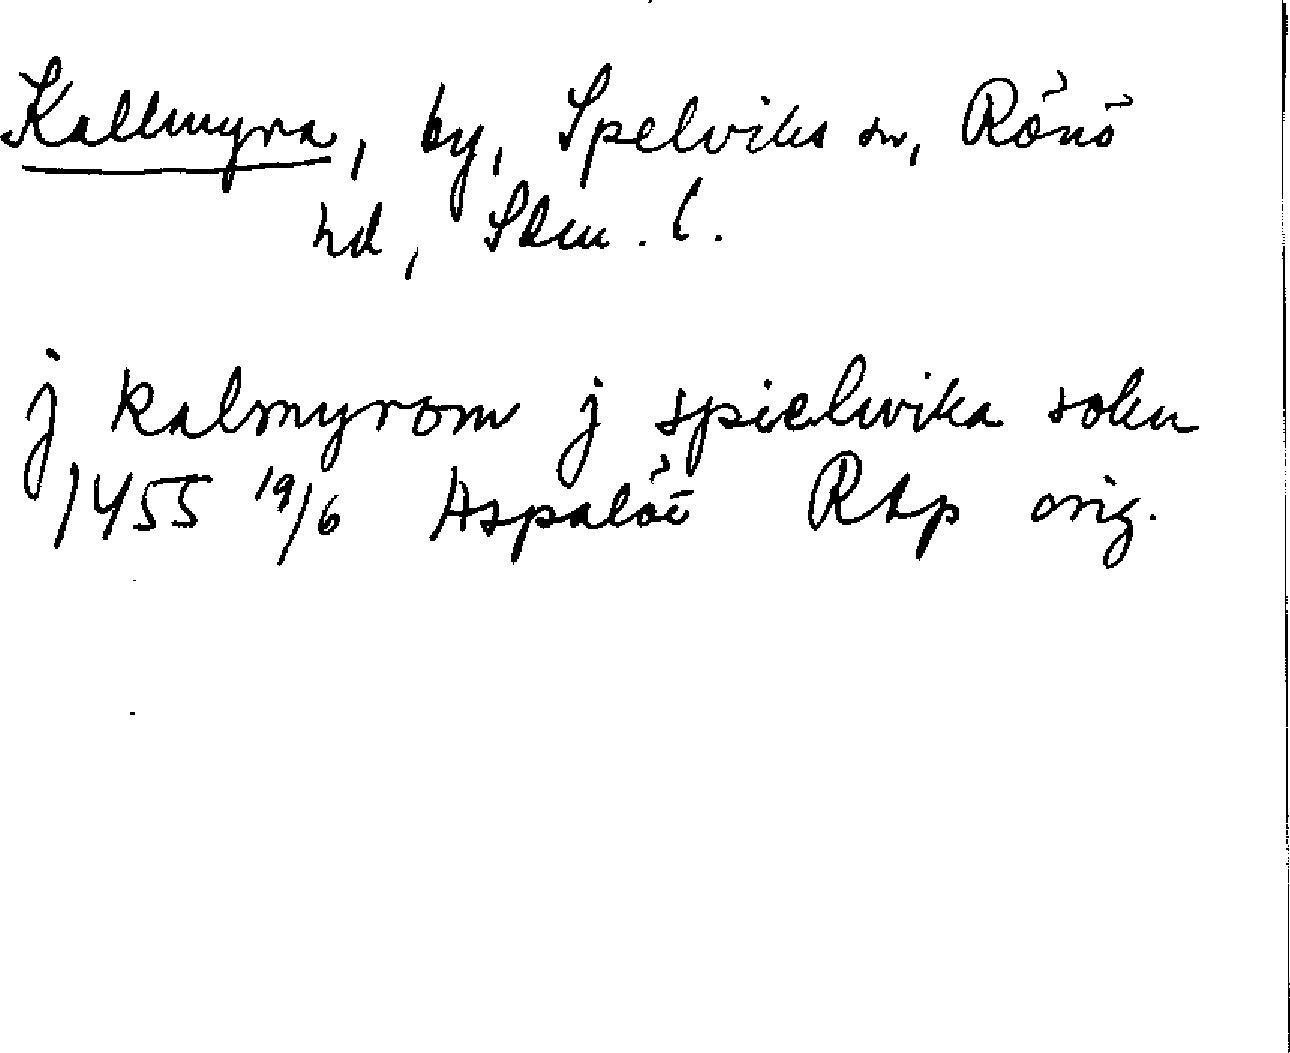 Kallmyra, by, Spelviks sn, Rönö
hd, Sdm. l.
j kalmyrom j spielwika sokn
1455 19/6 Aspalöt RAp orig.